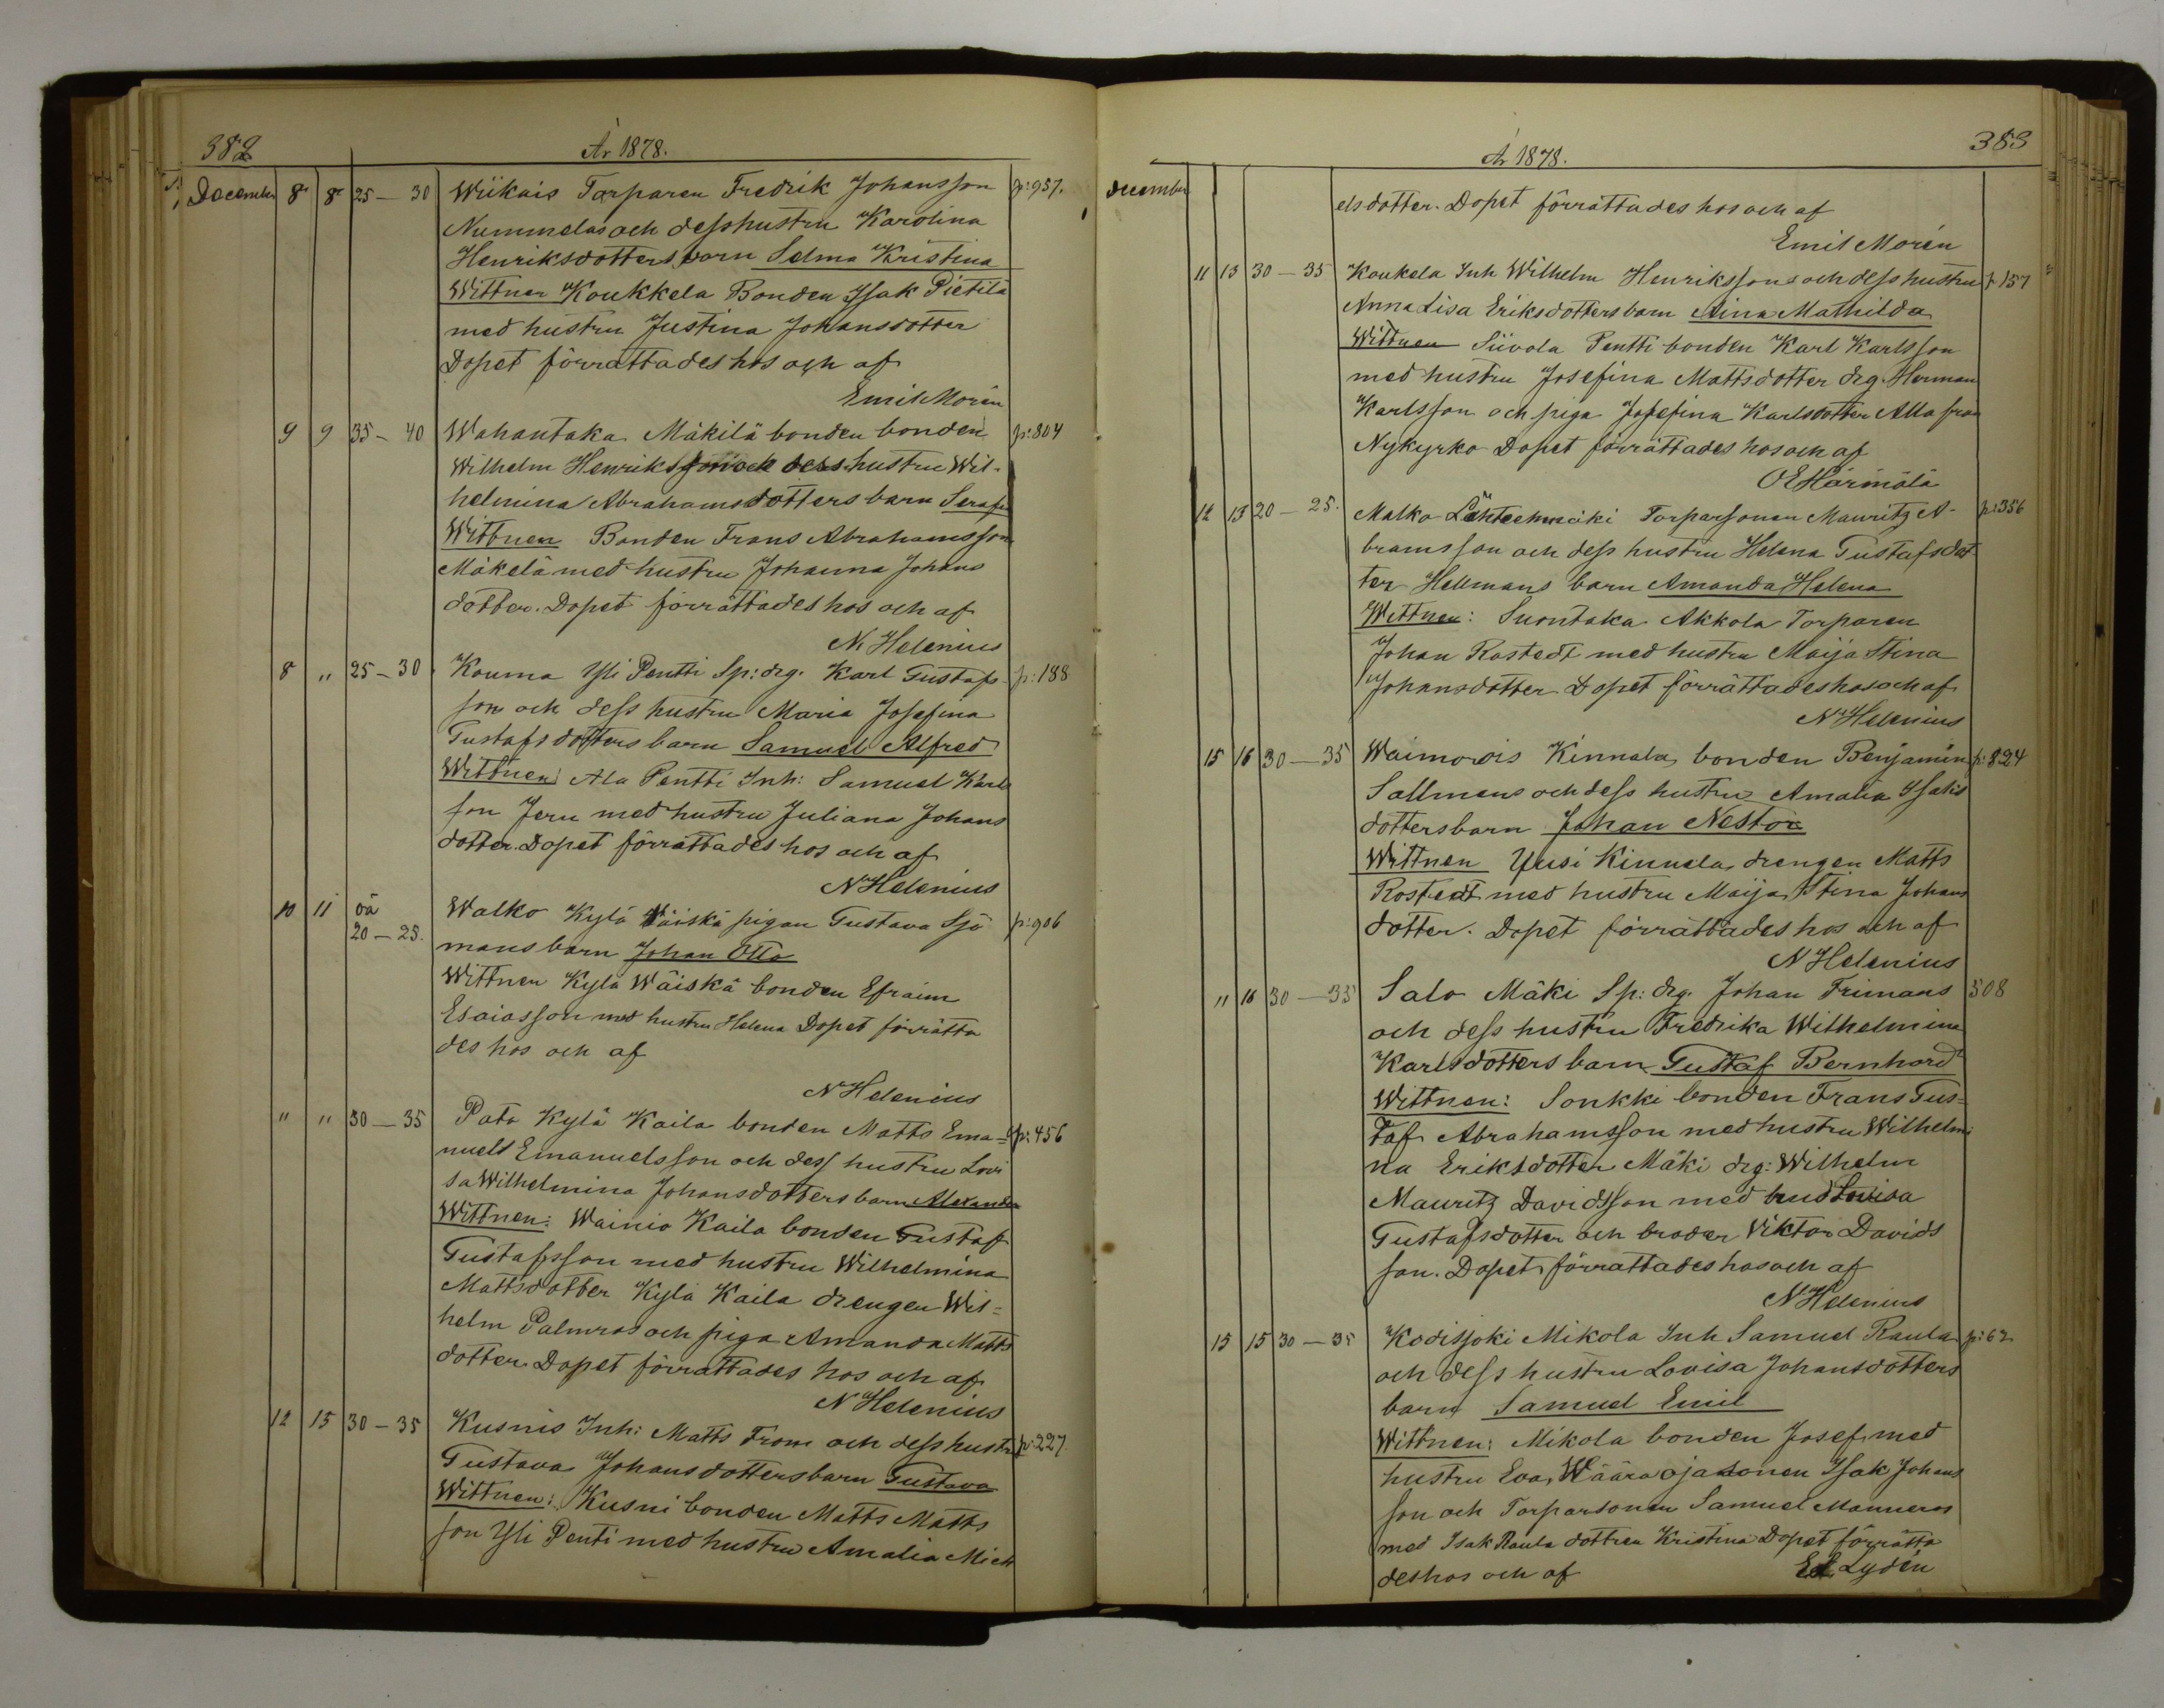 382
År 1878.
December 8 8 25 — 30 Wiikais Torparen Fredrik Johansson p: 957.
Nummelas och dess hustru Karolina
Henriksdotters barn Selma Kristina
Wittnen Koukkela Bonden Isak Pietilä
med hustru Justina Johansdotter
Dopet förrättades hos och af
Emil Morén
9 9 35 — 40 Wahantaka Mäkilä bonden bonden p: 804
Wilhelm Henrikssons och dess hustru Wil-
helmina Abrahamsdotters barn Serafi
Wittnen Bonden Frans Abrahamsson
Mäkelä med hustru Johanna Johans
dotter. Dopet förrättades hos och af
N. Helenius
8 " 25 — 30 Kouma Yli Pentti Sp: drg. Karl Gustafs- p: 188
son och dess hustru Maria Josefina
Gustafsdotters barn Samuel Alfred
Wittnen Ala Pentti Inh: Samuel Karls
son Jern med hustru Juliana Johans
dotter. Dopet förrättades hos och af
N Helenius
10 11 oä 20 — 25. Walko Kylä Wäiskä pigan Gustava Sjö p: 906
mans barn Johan Otto
Wittnen Kylä Wäiskä bonden Efraim
Esaiasson med hustru Helena Dopet förrätta
des hos och af
N Helenius
" " 30 — 35 Pato Kylä Kaila bonden Matts Ema= p: 456
nuels Emanuelsson och dess hustru Lovi
sa Wilhelmina Johansdotters barn Alexander
Wittnen: Wainio Kaila bonden Gustaf
Gustafsson med hustru Wilhelmina
Mattsdotter Kylä Kaila drengen Wil=
helm Palmros och piga Amanda Matts
dotter. Dopet förrättades hos och af
N Helenius
12 15 30 — 35 Kusnis Inh: Matts From och dess hustru p: 227.
Gustava Johansdotters barn Gustava
Wittnen: Kusni bonden Matts Matts
son Yli Penti med hustru Amalia Mich
383
År 1878.
December elsdotter. Dopet förrättades hos och af
Emil Morén
11 13 30 — 35 Koukela Inh Wilhelm Henrikssons och dess hustru p 157
Anna Lisa Eriksdotters barn Aina Mathilda
Wittnen Siivola Pentti bonden Karl Karlsson
med hustru Josefina Mattsdotter drg. Herman
Karlsson och piga Josefina Karlsdotter Alla från
Nykyrko Dopet förrättades hos och af
O E Härmälä
12 13 20 — 25. Malko Lähteenmäki Torparsonen Mauritz A- p: 356
bramsson och dess hustru Helena Gustafsdot
ter Hellmans barn Amanda Helena
Wittnen: Suontaka Akkola Torparen
Johan Rostedt med hustru Maija Stina
Johansdotter Dopet förrättades hos och af
N Helenius
15 16 30 — 35 Waimorois Kinnala bonden Benjamin p: 824
Sallmens och dess hustru Amalia Isaks
dotters barn Johan Nestor
Wittnen Yusi Kinnela drengen Matts
Rostedt med hustru Maija Stina Johans
dotter. Dopet förrättades hos och af
N Helenius
" 16 30 — 35 Salo Mäki Sp: drg. Johan Frimans 508
och dess hustru Fredrika Wilhelmina
Karlsdotters barn Gustaf Bernhard
Wittnen: Sonkki bonden Frans Gus=
taf Abrahamsson med hustru Wilhelmi
na Eriksdotter Mäki drg: Wilhelm
Mauritz Davidsson med brud Lovisa
Gustafsdotter och broder Viktor Davids
son. Dopet förrättades hos och af
N Helenius
15 15 30 — 35 Kodisjoki Mikola Inh Samuel Raula p: 62
och dess hustru Lovisa Johansdotters
barn Samuel Emil
Wittnen: Mikola bonden Josef med
hustru Eva, Wääraojasonen Isak Johans
son och Torparsonen Samuel Manneros
med Isak Raula dottren Kristina Dopet förrätta
des hos och af
Ed Lydén